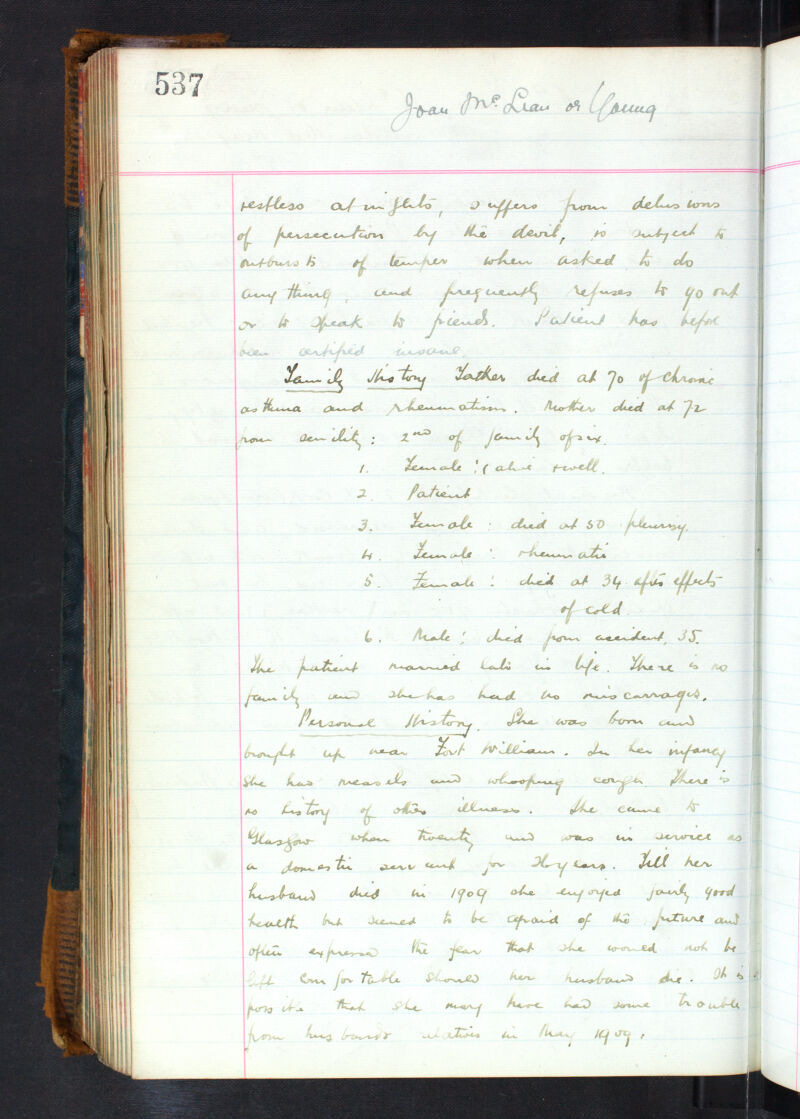 537
Joan Mc Lean or Young
restless at nights, suffers from delusions
of persecution by the devil, is subject to
outbursts of temper when asked to do
anything, and frequently refuses to go out
or to speak to friends. Patient has before
been certified insane.
Family History Father died at 70 of chronic
asthma and rheumatism. Mother died at 72
from senility: 2nd of family of six.
1. Female: alive & well.
2. Patient
3. Female: died at 50 pleurisy.
4. Female: rheumatic
5. Female: died at 34 after effects
of cold.
6. Male: died from accident, 35.
The patient married late in life. There is no
family and she has had no miscarrages.
Personal History. She was born and
brought up near Fort William. In her infancy
she has measels and whooping cough. There is
no history of other illness. She came to
Glasgow when twenty and was in service as
a domestic servant for years. Till her
husband died in 1909 she enjoyed fairly good
health but seemed to be afraid of the future and
often expressed the fear that she would not be
left comfortable should her husband die. It is
possible that she may have had some trouble
from husbands relatives in May 1909.